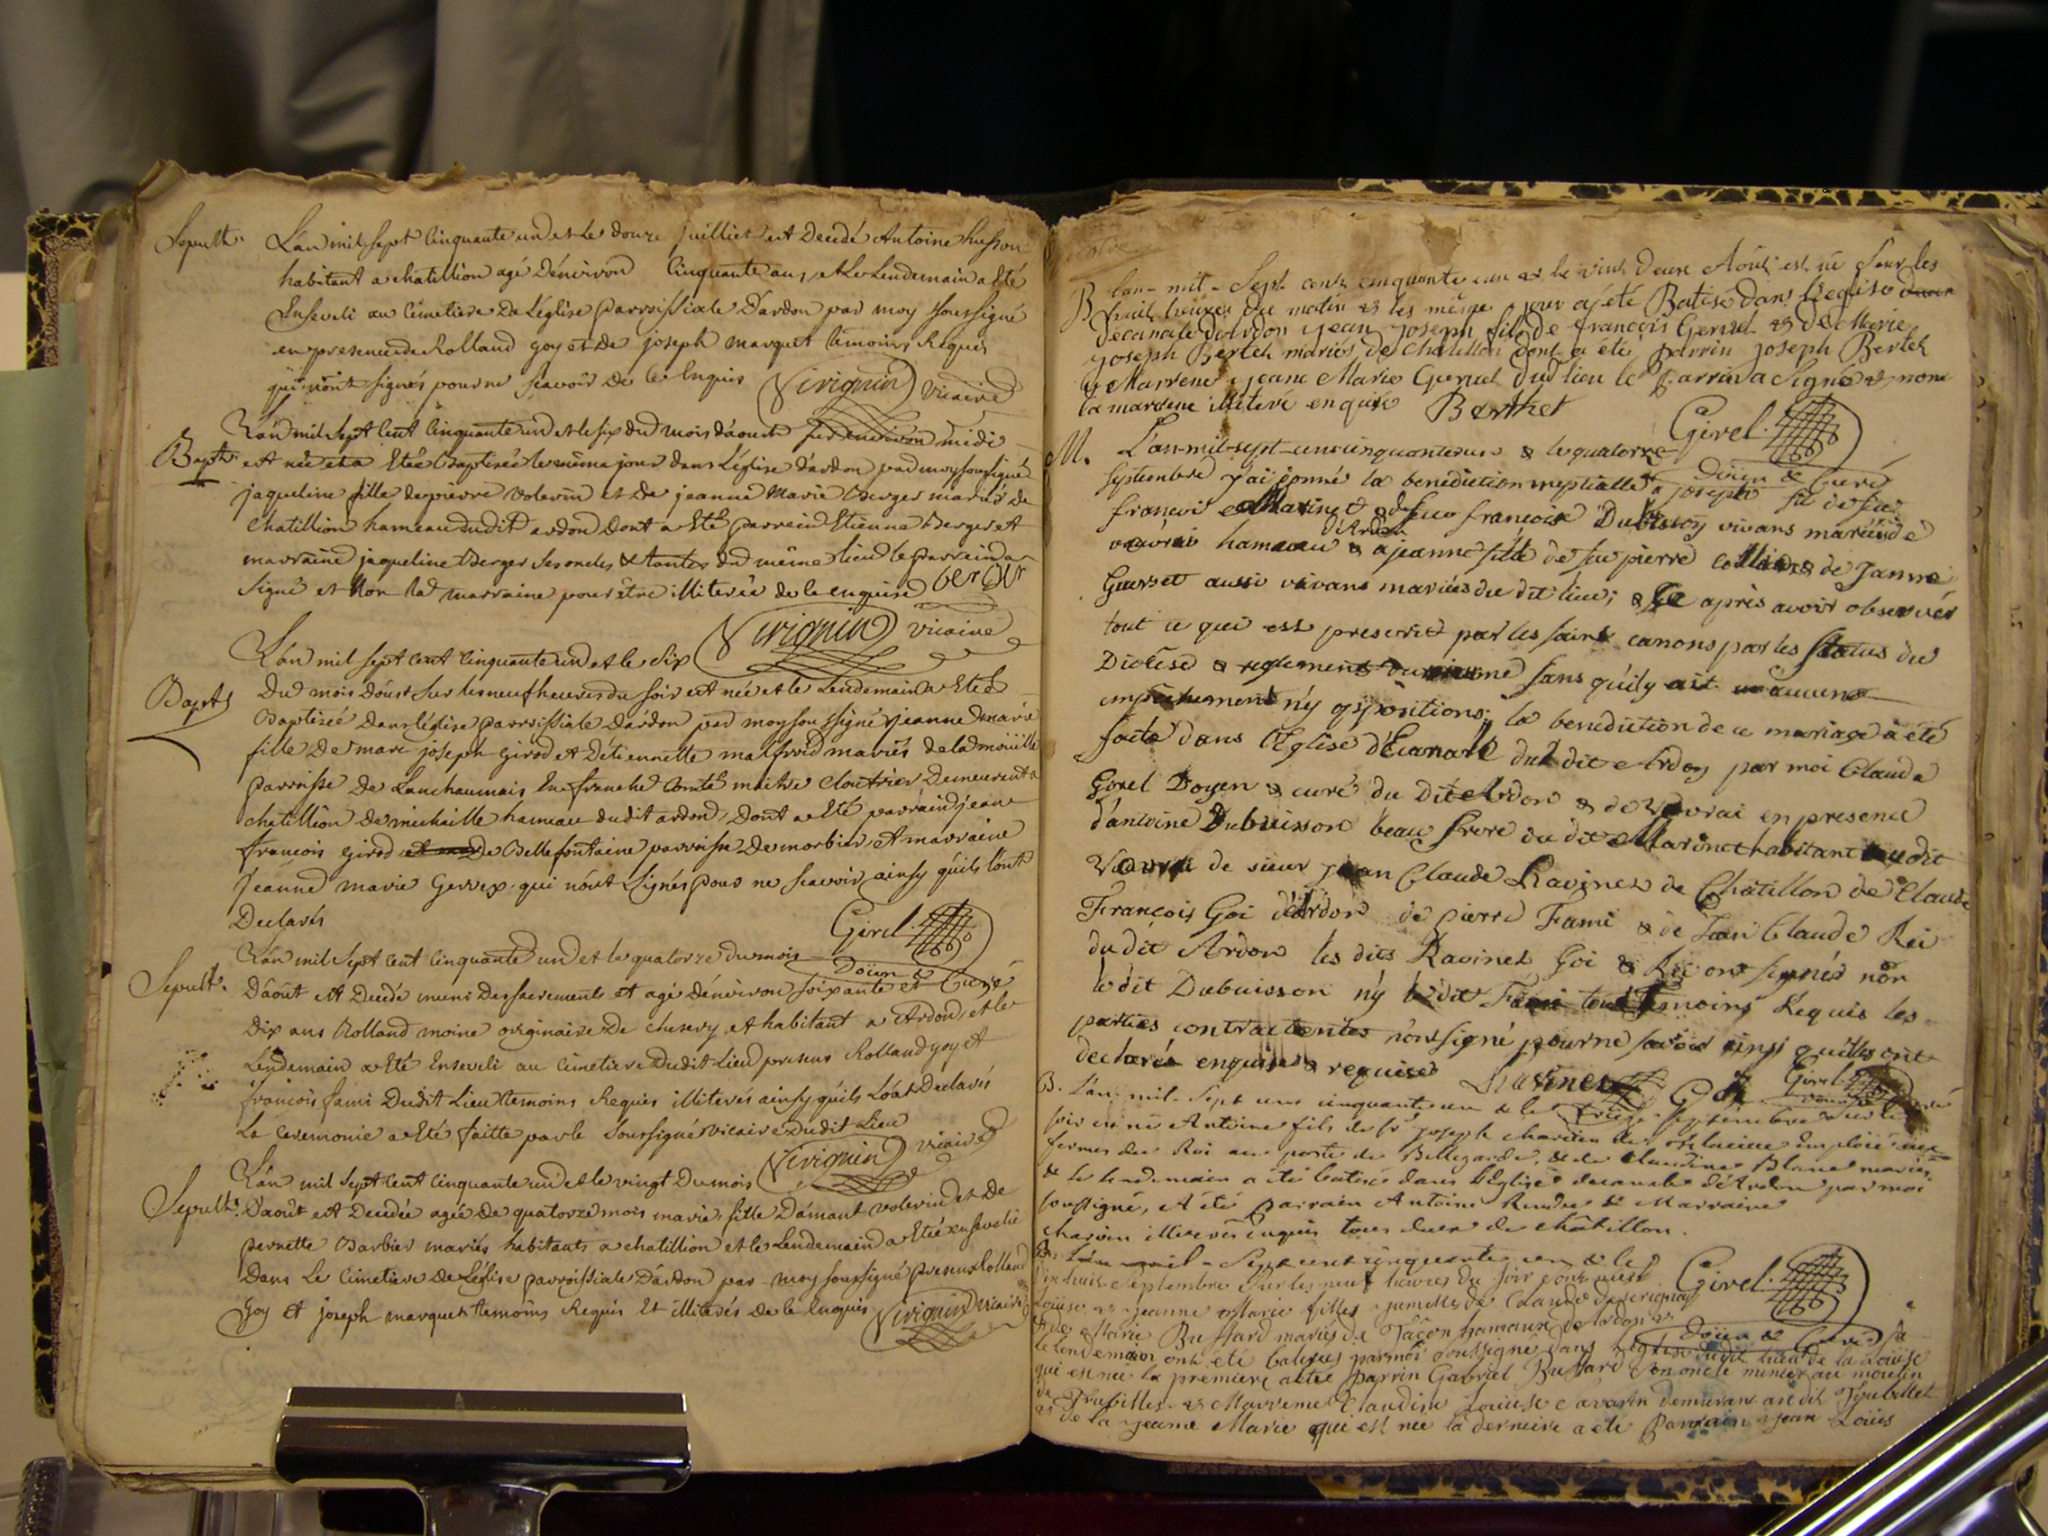 Sepult.
L'an mil sept cinquante un et le douze juilliet est decedé Antoine husson
habitant a chatillion agé d'environ cinquante ans, et le Lendemain a Eté
Enseveli au cimetiere de L'église parroissiale d'ardon par moy soussigné
en presence de Rolland goy et de joseph marquet temoins Requis
qui n'ont signés pour ne sçavoir de ce Enquis Virignin vicaire
Bapt.
L'an mil sept cent cinquante un et le six du mois d'aoust sur environ midi
est née et a Etée Baptisée le même jour dans L'église d'ardon par moy soussigné
jaqueline fille de pierre volerin et de jeanne Marie Berger mariés de
Chatillion hameau dudit ardon dont a Eté parrein Etienne Berger et
marraine jaqueline Berger ses oncles & tantes du même lieu le parrain a
signé et Non la marraine pour être illiterée de ce enquise berger
Virignin vicaire
Bapt.
L'an mil sept cent cinquante un et le six
Du mois d'oust sur les neuf heures du soir est née et le Lendemain a Etée
Baptisée dans l'église parroissiale d'ardon par moy soussigné jeanne marie
fille de marc joseph girod et d'étiennette malfroid mariés de la moüille
parroisse de Lanchaumais En franche Comté maitre cloutrier Demeurent a
chatillion de michaille hameau dudit ardon, dont a Eté parrain jean
francois girod de Bellefontaine parroisse de morbier, et marraine
Jeanne marie Gerrex qui n'ont signés pour ne scavoir ainsy qu'ils l'ont
Declarés
Girel Doïen & Curé
Sepult.
L'an mil sept cent cinquante un et le quatorze du mois
D'août est Decedé muni des sacrements et agé d'environ soixante et
Dix ans Rolland moine originaire de chesery, et habitant a Ardon, et le
Lendemain a Eté Enseveli au Cimetiere Dudit Lieu presens Rolland goy et
françois fami Dudit Lieu temoins Requis illiterés ainsy qu'ils L'o'nt Declarés
La Ceremonie a Eté faitte par le soussigné vicaire Dudit Lieu
Virignin vicaire
Sepult.
L'an mil sept cent cinquante un et le vingt Du mois
D'août est Decedée agée de quatorze mois marie fille D'amant volerin et de
pernette Barbier mariés habitants a chatillion et le Lendemain a Etée ensevelie
Dans Le Cimetiere de L'église parroissiale D'ardon par moy soussigné presens Rolland
Goy et joseph marquet temoins Requis Et illiterés de ce Enquis Virignin vicaire
B
L'an mil Sept cent cinquante un & le vint deux Aoüt est né sur les
huit heures du matin & les même jour a été Batisé dans l'église
decanale d'ardon jean joseph fils de françois Geruel & de Marie
joseph Bertet mariés de chatillon dont a été parrin joseph Bertet
& Marrene jeane Marie Geruel dud lieu le parrin a signé & non
la marrene illiteré enquise Berthet
Girel Doïen & Curé
M.
L'an mil sept cent cinquante un & le quatorze
septembre j'ai donné la benediction nuptialle a joseph fils de feu
francois Marinet & de feue francoise Dubuisson vivans mariés de
vouvrai hameau d'Ardon & a jeanne fille de feu pierre & de Janne
Guerset aussi vivans mariés du dit lieu; & ce après avoir observés
tout ce qui est prescrit par les saints canons par les status du
Diocèse & reglements du royaume sans qu'ily ait aucune
empéchement n'y oppositions; la benediction de ce mariage a été
faite dans l'Eglise d'Ecanale du dit Ardon par moi Claude
Girel Doyen & curé du Dit Ardon & de Vouvrai en presence
d'antoine Dubuisson beau frere du dit Marinet habitant audit
Vouvrai de sieur jean Claude Ravinet de Chatillon de Claude
François Goi d'Ardon de pierre Fami & de Jean Claude Rei
du dit Ardon les dits Ravinet Goi & Rei ont signés non
le dit Dubuisson n'y le dit Fami tous temoins Requis les
parties contractentes n'ont signé pour ne savoir ainsi quilles ont
declarés enquises & requises Ravinet Goi Girel
B.
L'an mil Sept cent cinquante un & le treize septembre sur le
soir est né Antoine fils de sr joseph charvin emploié aux
fermes du Roi au poste de Bellegarde, & de claudine Blanc mariés
& le lendemain a été batisé dans l'Eglise decanale d'Ardon par moi
soussigné, A été parrain Antoine & Marraine
charvin illiterés enquis tous deux de châtillon.
B.
L'an mil Sept cent cinquante un & le
dixhuit Septembre sur les neuf heures du soir sont nées
Loüise & jeanne Marie filles jumelles de Claude de
& de Marie Bussard mariés de Tacon hameau d'Ardon &
Girel Doïen & Curé
le lendemain ont été batisées par moi soussigné dans l'Eglise dudit lieu de la Loüise
qui est née la premiere a été parrin Gabriel Bussard son oncle munier au moulin
de Trebillet & Marrene Claudine Loüise Cavarin demeurant au dit Trebillet
& de la jeanne Marie qui est née la derniere a été Parrain jean Loüis